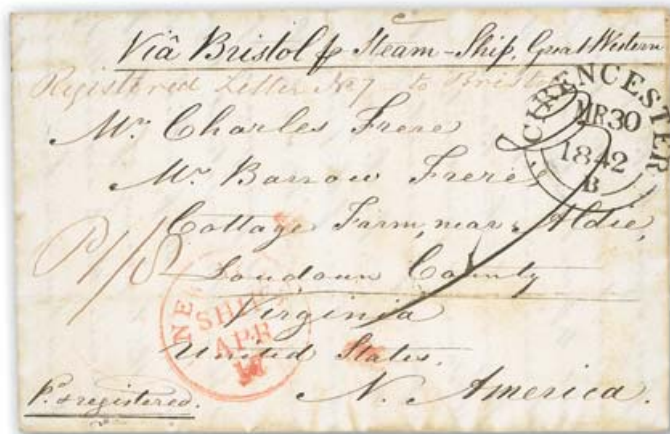 Viâ Bristol p Steam-Ship, Great Western
Registered Letter No 7 to Bristol
CIRENCESTER
MR30
1842
B
Mr. Charles Frere
Mr. Barrow Frere,
Cottage Farm, near Aldie,
Loudoun County
Virginia
United States.
N. America.
P1/8
NE
SHIP
APR
Pd & registered.